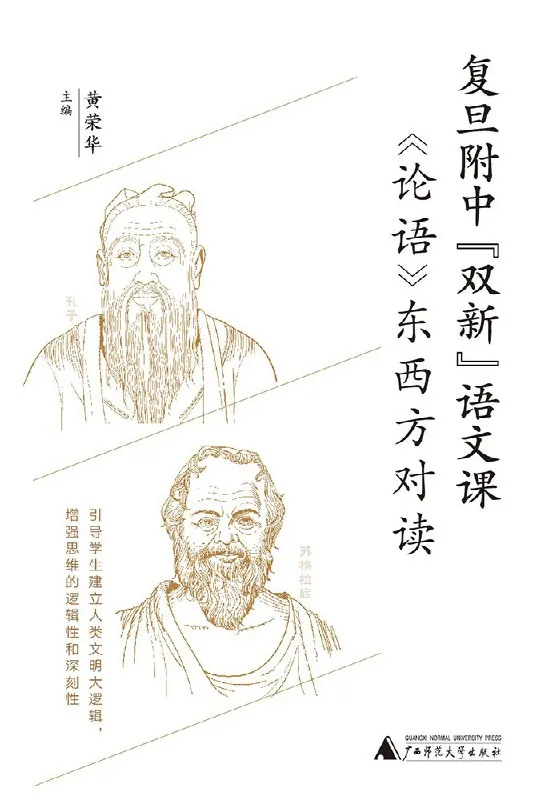 复旦附中『双新』语文课
《论语》东西方对读
黄荣华
主编
孔子
苏格拉底
引导学生建立人类文明大逻辑，
增强思维的逻辑性和深刻性
GUANGXI NORMAL UNIVERSITY PRESS
广西师范大学出版社